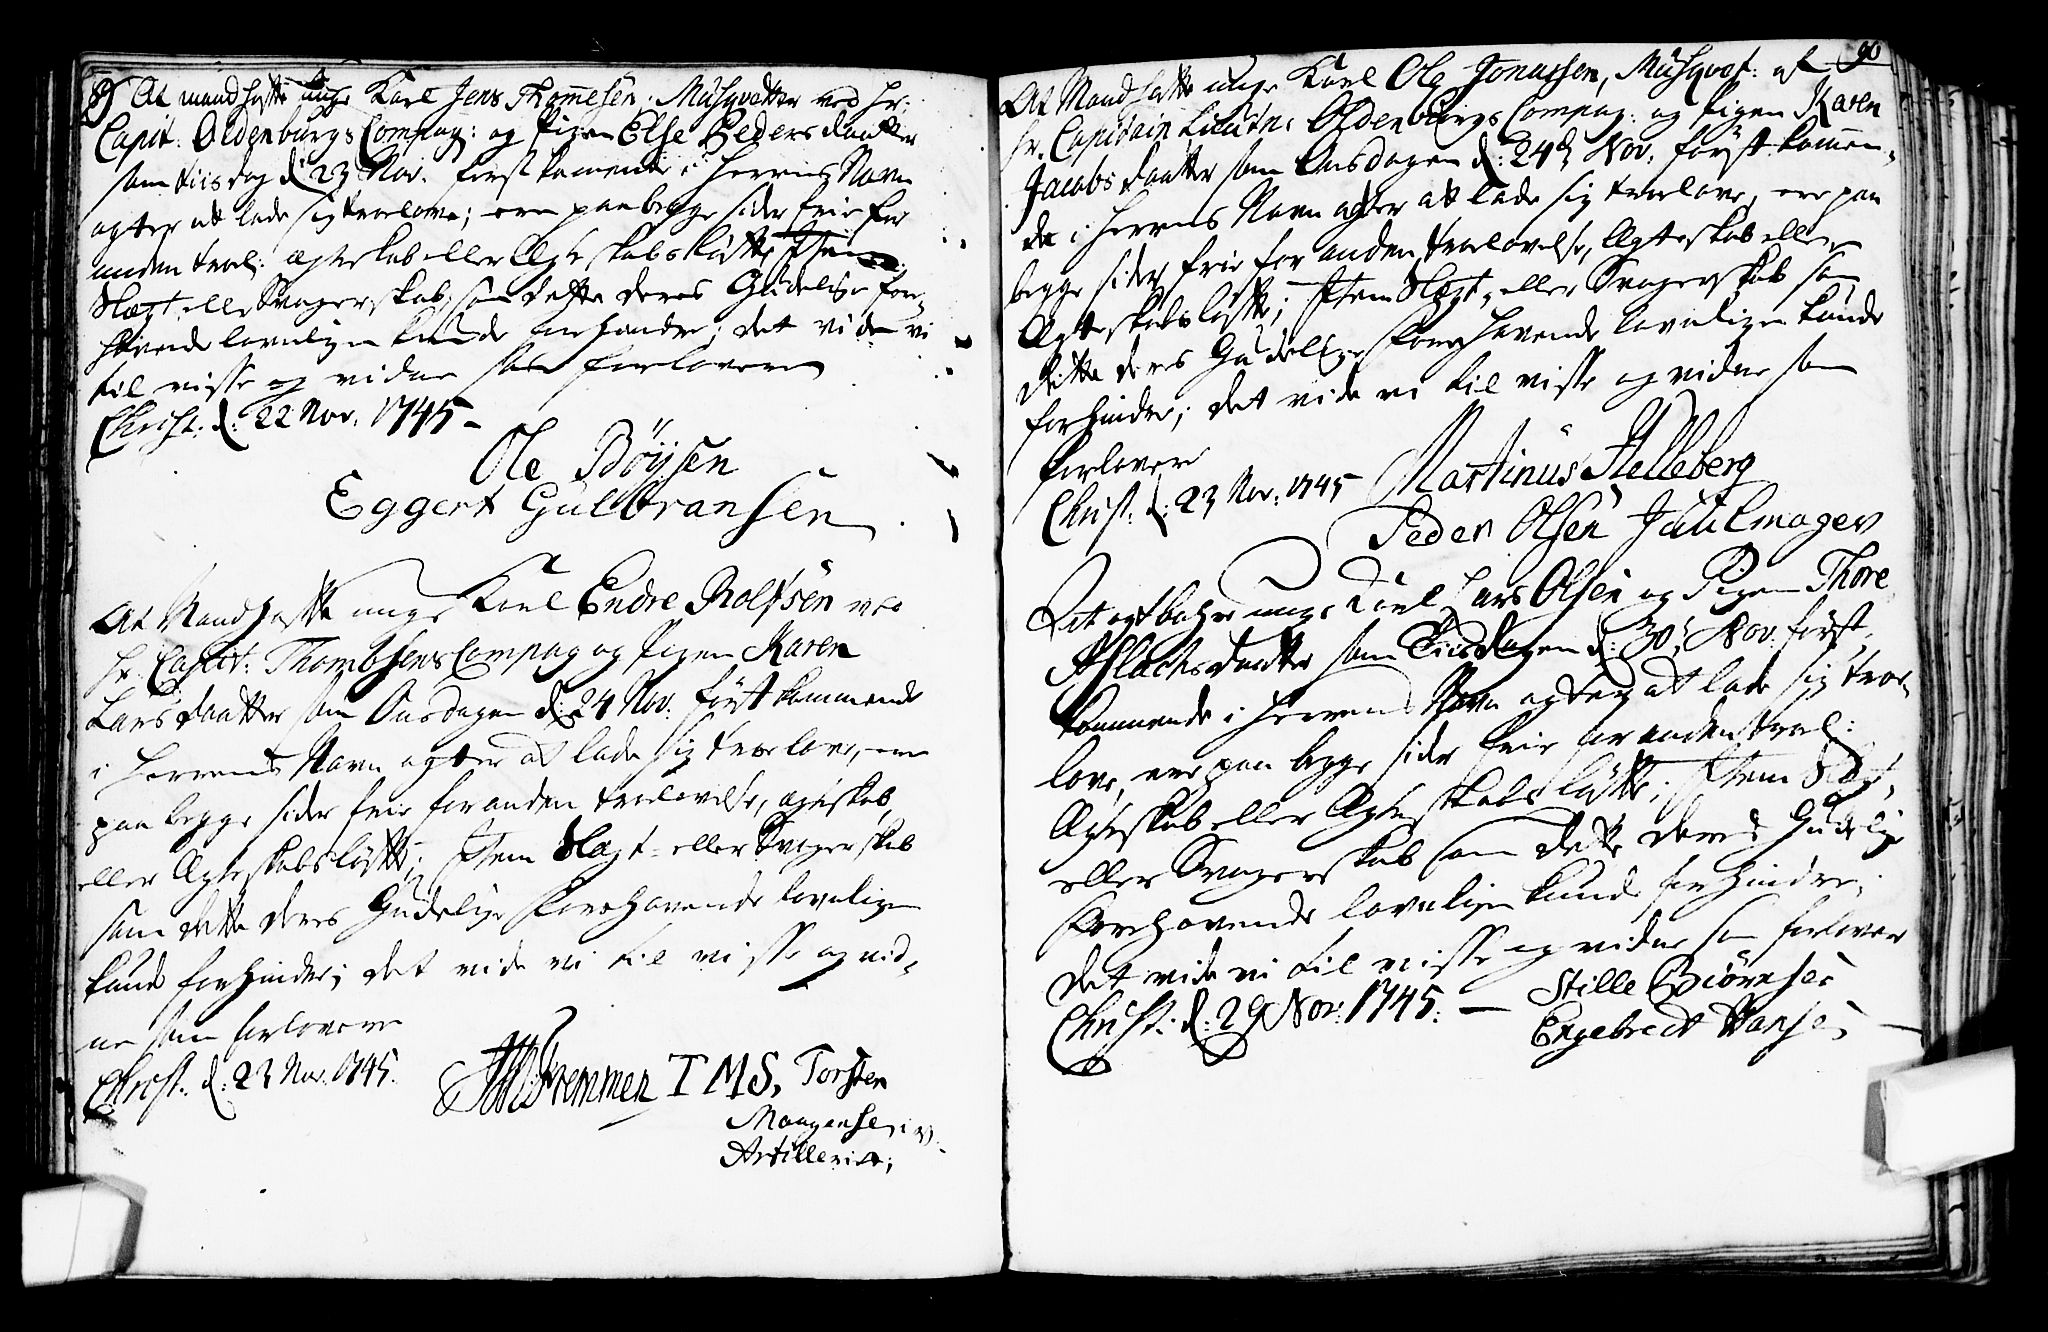 89
At mandhafte unge Karl Jens Thommesen, Musqvetter ved Hr:
Capit: Oldenburgs Compag: og Pigen Else Peders daatter
som tiisdag d: 23 Nov. först kommende i Herrens Navn
agter at lade sig troelove; ere paa begge sider frie for
anden trol: ægteskab eller Ægteskabs löfte, Item
Slægt- eller Svogerskab, som dette deres Gudelige fore-
havende lovligen kunde forhindre; det vide vi
til visse og vidne som forlovere
Christ: d: 22 Nov. 1745 -
Ole Böysen
Eggert Gulbransen
At Mandhafte unge Karl Endre Rolfsön ved
Hr. Capit: Thombsens Compag og Pigen Karen
Lars daatter som Onsdagen d: 24 Nov. först kommende
i Herrens Navn agter at lade sig troelove, ere
paa begge sider frie for anden trolovelse, ægteskab,
eller Ægteskabs löfte; Item Slægt- eller Svogerskab
som dette deres Gudelige Forehavende lovligen
kunde forhindre; det vide vi til visse og vid-
ne som forlovere
Christ: d: 23 Nov. 1745.
Fremmen TMS, Torsten
Maagensen v.
Artillerie;
90
At Mandhafte unge Karl Ole Jonassen, Musqvet: af
Hr. Capitain Lieutn: Oldenborgs Compag: og Pigen Karen
Jacobs daatter som Onsdagen d: 24d Nov: först kommen-
de i Herrens Navn agter at lade sig troelove, ere paa
begge sider frie for anden trolovelse, Ægteskab eller
Ægteskabs löfte; Item Slægt- eller Svogerskab som
dette deres Gudelige Forehavende lovligen kunde
forhindre; det vide vi til visse og vidne som
forlovere
Christ: d: 23 Nov: 1745 Martinus Helleberg
Peder Olsen
Det agtbahre unge Karl Lars Olsen og Pigen Thore
Aslachs daatter som Tiisdagen d: 30 Nov. först-
kommende i Herrens Navn agter at lade sig troe-
love, ere paa begge sider frie for anden trol:
Ægteskab eller Ægteskabs löfte; Item Slægt-
eller Svogerskab som dette deres Gudelige
Forehavende lovligen kunde forhindre;
det vide vi til visse og vidne som forlovere
Christ: d: 29 Nov: 1745. — Stille Biörnsen
Engebrect Hansen